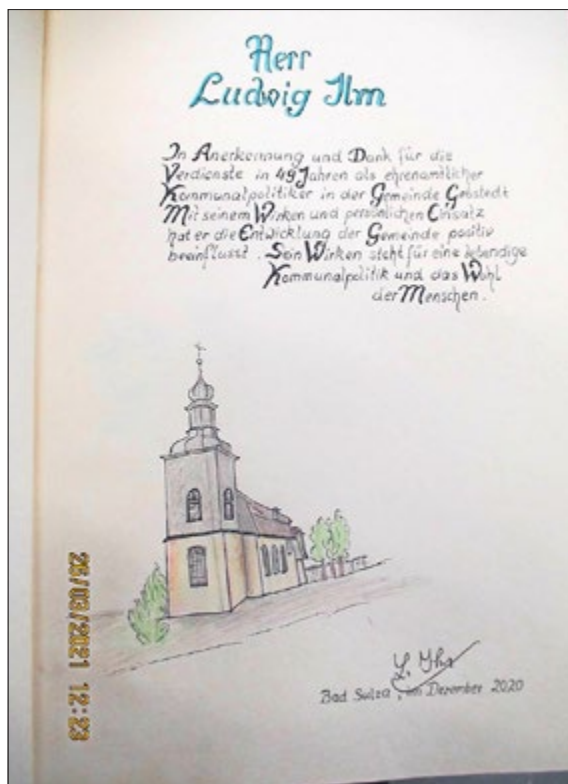 Herr
Ludwig Ilm
In Anerkennung und Dank für die
Verdienste in 49 Jahren als ehrenamtlicher
Kommunalpolitiker in der Gemeinde Gebstedt
Mit seinem Wirken und persönlichen Einsatz
hat er die Entwicklung der Gemeinde positiv
beeinflusst. Sein Wirken steht für eine lebendige
Kommunalpolitik und das Wohl
der Menschen.
Bad Sulza, im Dezember 2020
25/03/2021 12:23